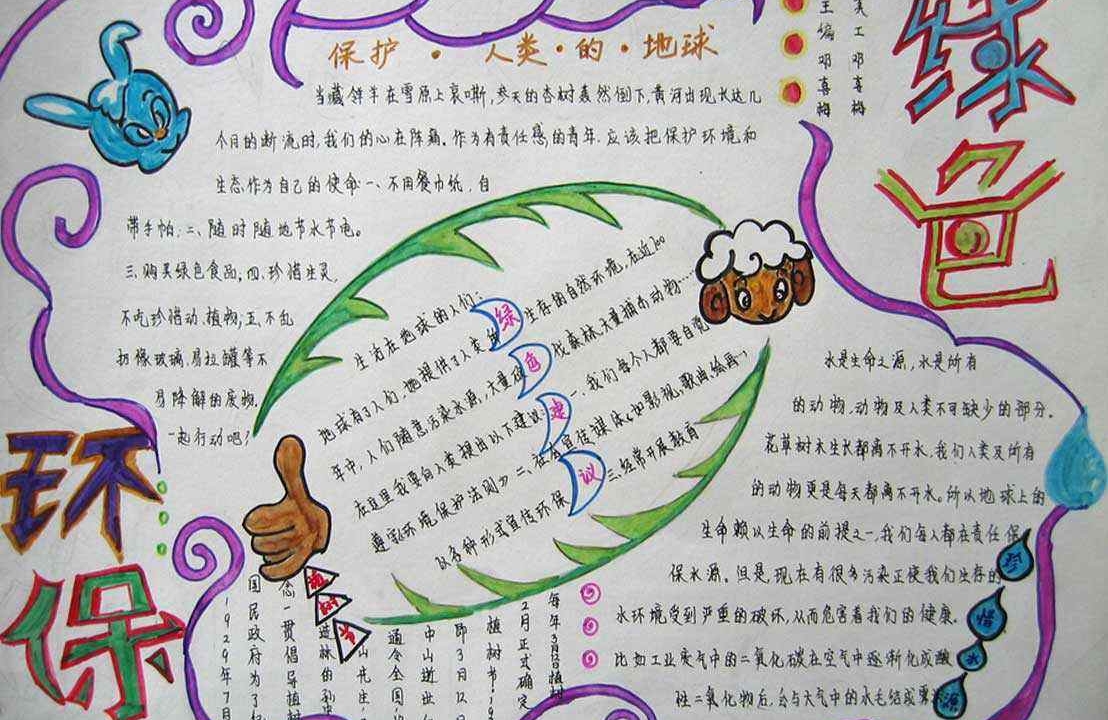 绿色
环保
保护·人类·的·地球
当藏羚羊在雪原上哀嘶,参天的杏树轰然倒下,黄河出现长达几
个月的断流时,我们的心在阵痛。作为有责任感的青年.应该把保护环境和
生态作为自己的使命.一、不用餐巾纸,自
带手帕;二、随时随地节水节电。
三.购买绿色食品,四.珍惜生灵,
不吃珍惜动.植物;五、不乱
扔像玻璃.易拉罐等不
易降解的废物,
一起行动吧!
主编 邓喜梅
美工 邓喜梅
绿色建议
生活在地球的人们:
地球有了人们,她提供了人类 生存的自然环境,在近100
年中,人们随意污染水源,大量砍伐森林,大量捕杀动物……
在这里我要向人类提出以下建议:一.我们每个人都要自觉
遵守《环境保护法则》二、社会宣传媒体《如影视,歌曲,绘画》
以各种形式宣传环保 三.经常开展教育
水是生命之源,水是所有
的动物,动物及人类不可缺少的部分。
花草树木生长都离不开水,我们人类及所有
的动物更是每天都离不开水。所以地球上的
生命赖以生命的前提之一,我们每人都在责任保
保水源。但是,现在有很多污染正使我们生存的
水环境受到严重的破坏,从而危害着我们的健康。
比如工业废气中的二氧化碳在空气中逐渐化成酸
性二氧化物后,会与大气中的水毛结成雾
珍惜水源
植树节
每年3月12日植树
2月正式确定
植树节.19
即3月12日
中山逝世
通令全国
山先生
造林的
念一贯倡导植树
国民政府为了纪
1929年7月